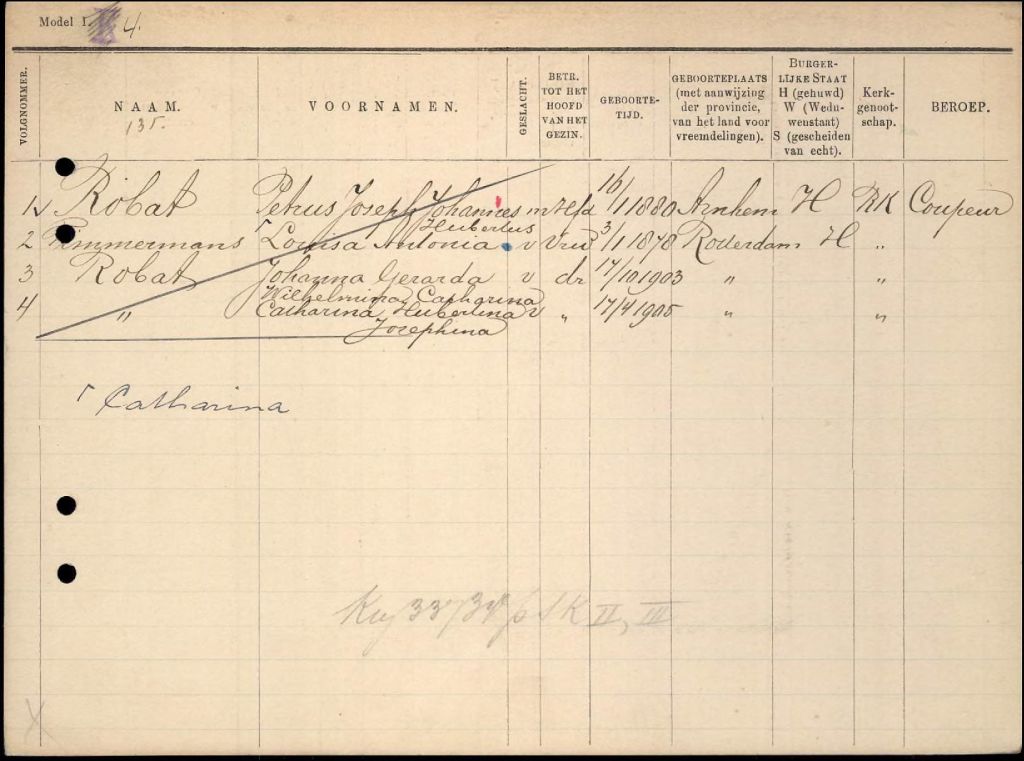 Model I. 4
VOLGNOMMER.
NAAM.
135.
VOORNAMEN.
GESLACHT.
BETR.
TOT HET
HOOFD
VAN HET
GEZIN.
GEBOORTE-
TIJD.
GEBOORTEPLAATS
(met aanwijzing
der provincie,
van het land voor
vreemdelingen).
BURGER-
LIJKE STAAT
H (gehuwd)
W (Wedu-
wenstaat)
S (gescheiden
van echt).
Kerk-
genoot-
schap.
BEROEP.
1 Robat Petrus Joseph Johannes m Hfd 16/1 1880 Arnhem H RK Coupeur
Hubertus
2 Timmermans Louisa Antonia v Vrd 3/1 1878 Rotterdam H "
3 Robat Johanna Gerarda v dr 17/10 1903 " "
Wilhelmina Catharina
4 " Catharina Hubertina v " 17/4 1905 " "
Josephina
Catharina
SK II, III